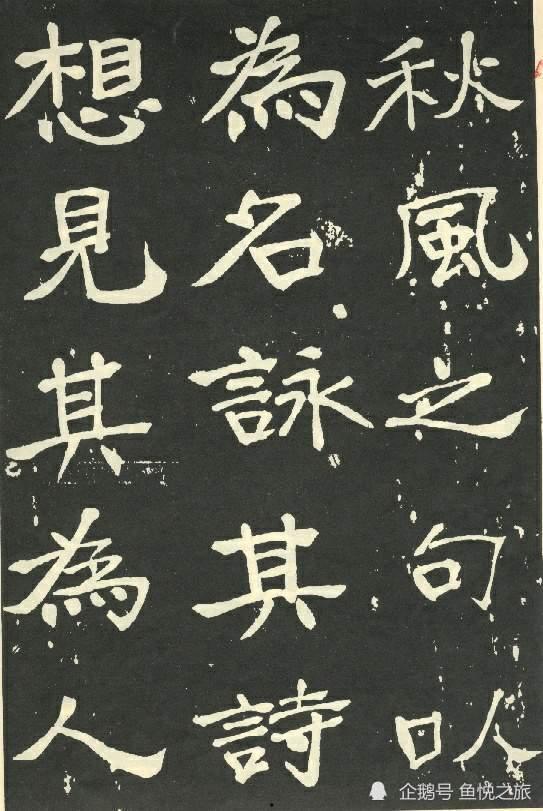 秋風之句㠯
為名詠其詩
想見其為人
企鹅号 鱼悦之旅